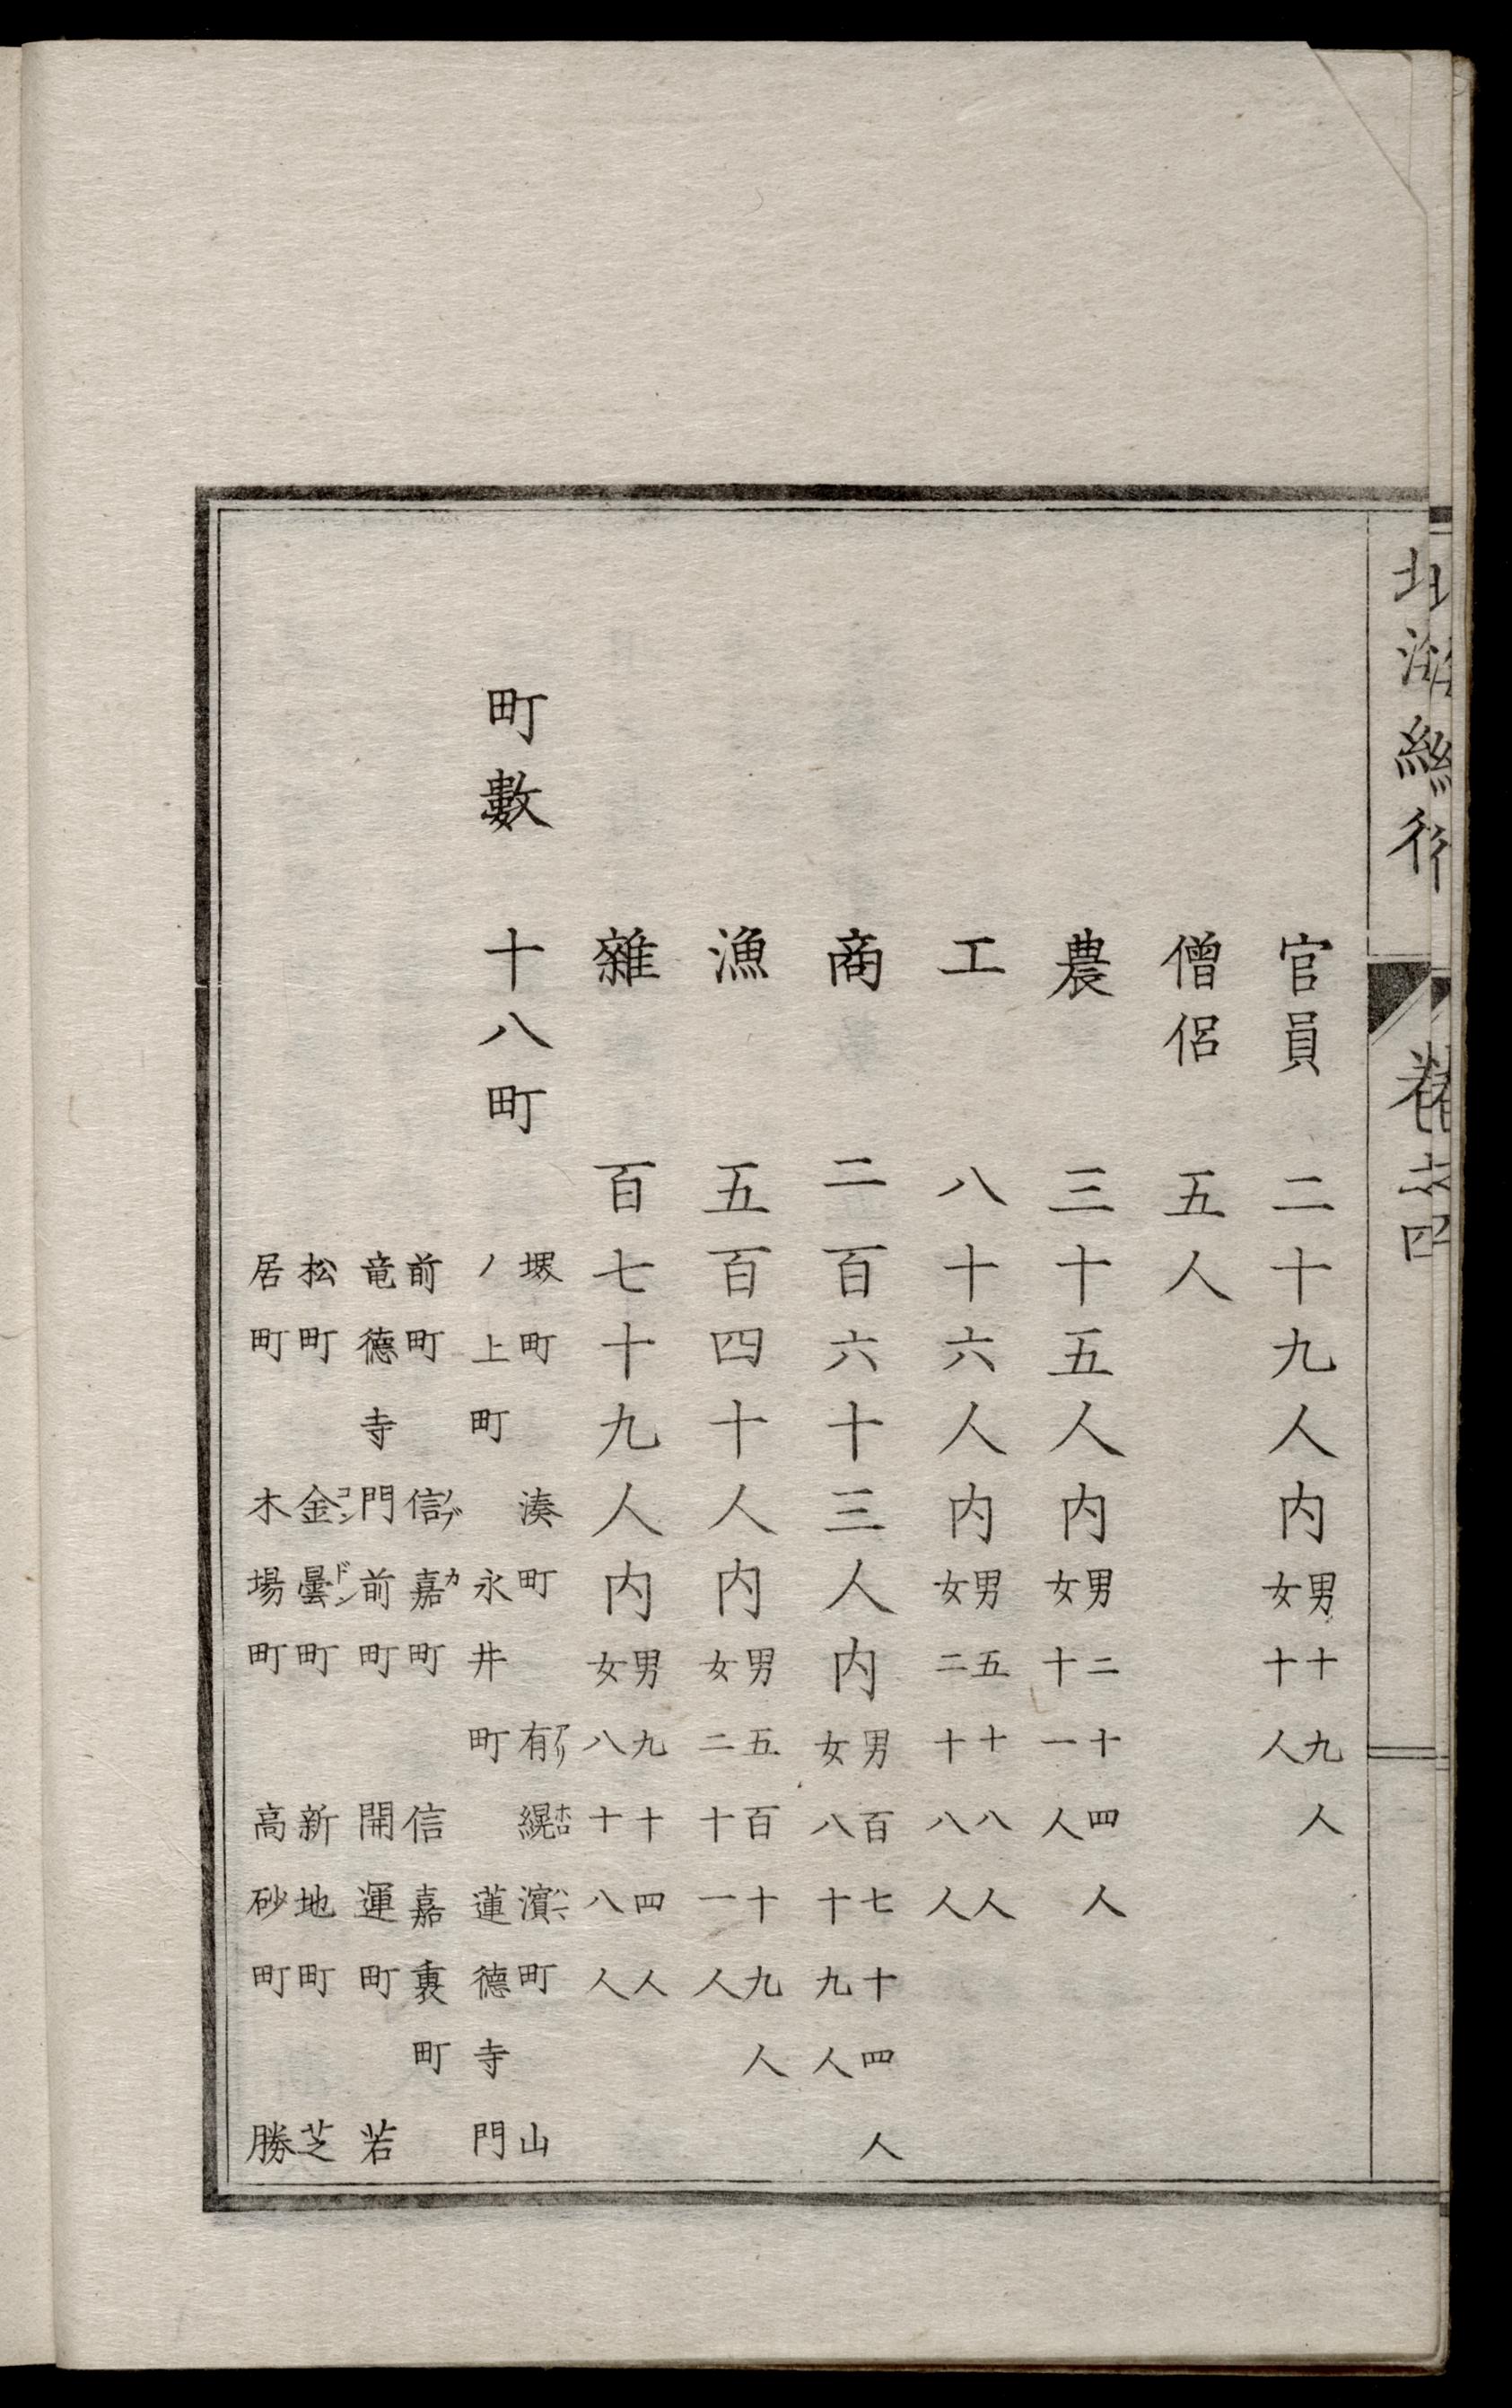 北海紀行 卷之四
官員 二十九人内 男十九人
女十人
僧侶 五人
農 三十五人内 男二十四人
女十一人
工 八十六人内 男五十八人
女二十八人
商 二百六十三人内 男百七十四人
女八十九人
漁 五百四十人内 男五百十九人
女二十一人
雜 百七十九人内 男九十四人
女八十八人
町數 十八町
堺町 湊町 有アリ縨ホロ濱ハマ町 山
ノ上町 永井町 蓮德寺門
前町 信ノブ嘉カ町 信嘉裏町
竜德寺門前町 開運町 若
松町 金コン曇ドン町 新地町 芝
居町 木場町 高砂町 勝